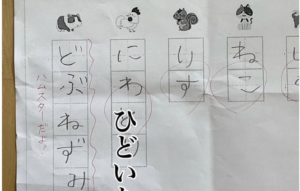 ねこ
りす
にわ
ひどいか
どぶねずみ
ハムスターです。